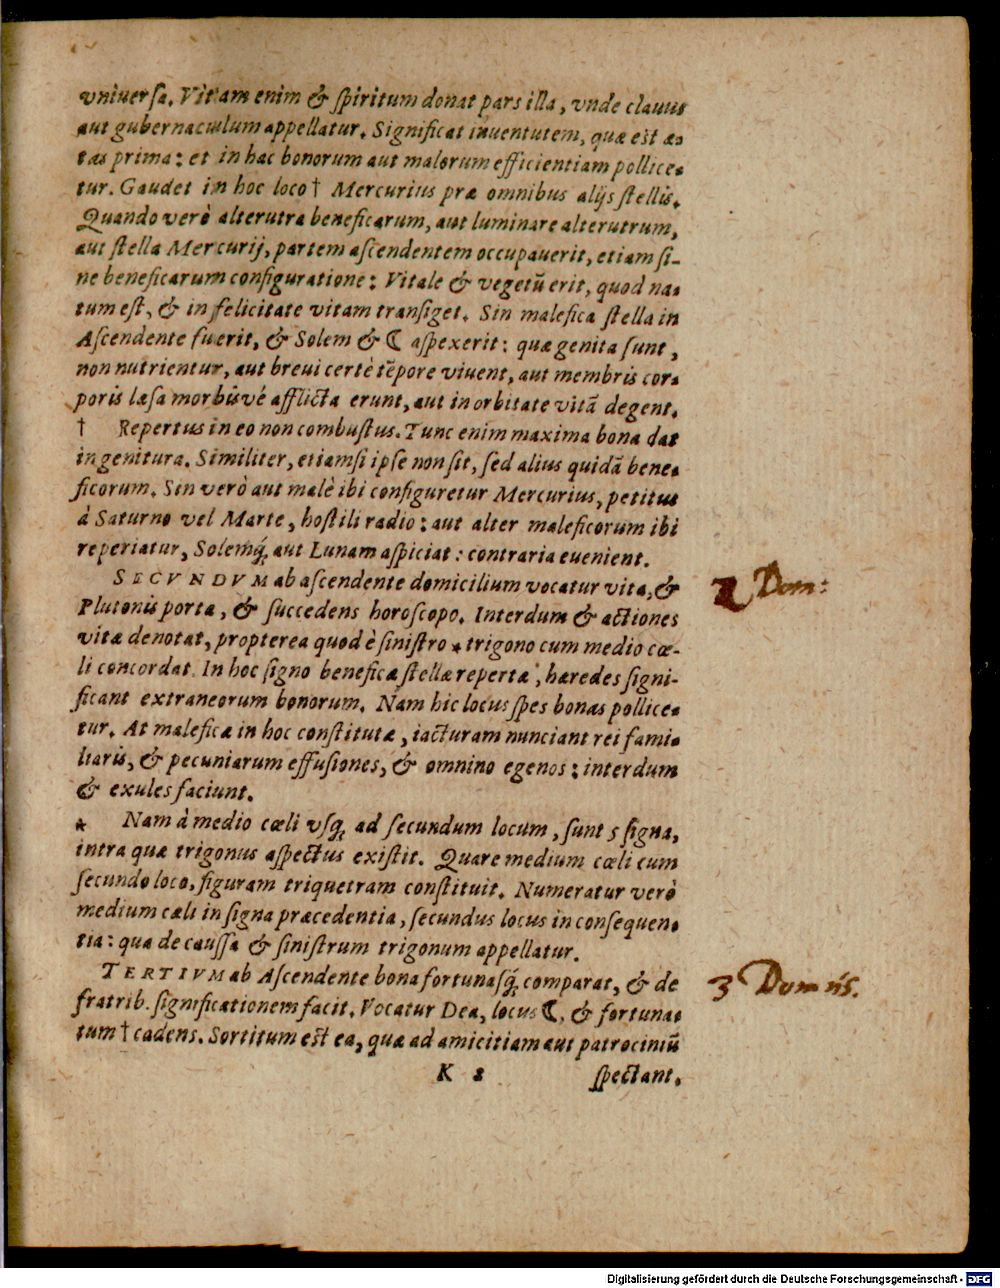 vniuersa. Vitam enim & ſpiritum donat pars illa, vnde clauus
aut gubernaculum appellatur. Significat iuuentutem, quæ est æ⸗
tas prima: et in hac bonorum aut malorum efficientiam pollice⸗
tur. Gaudet in hoc loco † Mercurius præ omnibus alijs ſtellis.
Quando verò alterutra beneficarum, aut luminare alterutrum,
aut ſtella Mercurij, partem aſcendentem occupauerit, etiam ſi-
ne beneficarum configuratione: Vitale & vegetũ erit, quod na⸗
tum eſt, & in felicitate vitam transiget. Sin malefica ſtella in
Aſcendente fuerit, & Solem & ☾ aſpexerit: quæ genita ſunt,
non nutrientur, aut breui certè tẽpore viuent, aut membris cor⸗
poris læſa morbisvé afflicta erunt, aut in orbitate vitã degent.
† Repertus in eo non combuſtus. Tunc enim maxima bona dat
in genitura. Similiter, etiamſi ipſe non ſit, ſed alius quidã bene⸗
ficorum. Sin verò aut malè ibi configuretur Mercurius, petitus
à Saturno vel Marte, hoſtili radio: aut alter maleficorum ibi
reperiatur, Solemq́; aut Lunam aſpiciat: contraria euenient.
SECVNDVM ab aſcendente domicilium vocatur vita, &
Plutonis porta, & ſuccedens horoſcopo. Interdum & actiones
vitæ denotat, propterea quod è ſiniſtro * trigono cum medio cœ-
li concordat. In hoc ſigno beneficæ ſtellæ repertæ, hæredes ſigni-
ficant extraneorum bonorum. Nam hic locus ſpes bonas pollice⸗
tur. At maleficæ in hoc conſtitutæ, iacturam nunciant rei fami⸗
liaris, & pecuniarum effuſiones, & omnino egenos: interdum
& exules faciunt.
* Nam à medio cœli vſq; ad ſecundum locum, ſunt 5 ſigna,
intra quæ trigonus aſpectus exiſtit. Quare medium cœli cum
ſecundo loco, figuram triquetram conſtituit. Numeratur verò
medium cæli in ſigna præcedentia, ſecundus locus in conſequen⸗
tia: qua de cauſſa & ſiniſtrum trigonum appellatur.
TERTIVM ab Aſcendente bona fortunaſq́; comparat, & de
fratrib. ſignificationem facit. Vocatur Dea, locus ☾, & fortunæ
tum † cadens. Sortitum est ea, quæ ad amicitiam aut patrociniũ
K 2 ſpectant.
2 Dom:
3 Domus.
Digitalisierung gefördert durch die Deutsche Forschungsgemeinschaft - DFG